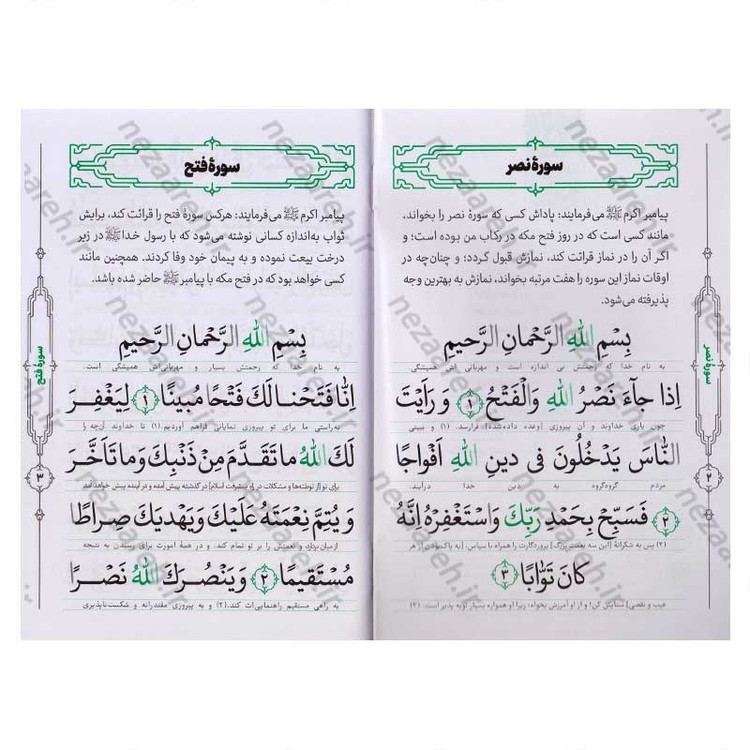 سورهٔ نصر
پیامبر اکرم ﷺ می‌فرمایند: پاداش کسی که سورهٔ نصر را بخواند،
مانند کسی است که در روز فتح مکه در رکاب من بوده است؛ و
اگر آن را در نماز قرائت کند، نمازش قبول گردد؛ و چنان‌چه در
اوقات نماز این سوره را هفت مرتبه بخواند، نمازش به بهترین وجه
پذیرفته می‌شود.
بِسْمِ اللّٰهِ الرَّحْمٰانِ الرَّحیمِ
به نام خدا که رحمتش بی اندازه است و مهربانی‌اش همیشگی
اِذا جٰآءَ نَصْرُ اللّٰهِ وَالْفَتْحُ ﴿۱﴾ وَ رَاَیْتَ
چون یاری خداوند و آن پیروزی [وعده داده‌شده] فرارسد. (۱) و ببینی
النّٰاسَ یَدْخُلُونَ فی دینِ اللّٰهِ اَفْوٰاجًا
مردم گروه‌گروه به دین خدا درآیند.
﴿۲﴾ فَسَبِّحْ بِحَمْدِ رَبِّکَ وَاسْتَغْفِرْهُ اِنَّهُ
(۲) پس به شکرانهٔ [این سه نعمت بزرگ] پروردگارت را همراه با سپاس، [به پاک‌بودن از هر
کٰانَ تَوّٰابًا ﴿۳﴾
عیب و نقصی] ستایش کن! و از او آمرزش بخواه؛ زیرا او همواره بسیار توبه پذیر است. (۳)
سورهٔ نصر
۲
سورهٔ فتح
پیامبر اکرم ﷺ می‌فرمایند: هرکس سورهٔ فتح را قرائت کند، برایش
ثواب به‌اندازه کسانی نوشته می‌شود که با رسول خدا ﷺ در زیر
درخت بیعت نموده و به پیمان خود وفا کردند. همچنین مانند
کسی خواهد بود که در فتح مکه با پیامبر ﷺ حاضر شده باشد.
بِسْمِ اللّٰهِ الرَّحْمٰانِ الرَّحیمِ
به نام خدا که رحمتش بسیار و مهربانی‌اش همیشگی است.
اِنّٰا فَتَحْنٰا لَکَ فَتْحًا مُبینًا ﴿۱﴾ لِیَغْفِرَ
به‌راستی ما برای تو پیروزی نمایانی فراهم آوردیم.(۱) تا خداوند آن‌چه را
لَکَ اللّٰهُ مٰا تَقَدَّمَ مِنْ ذَنْبِکَ وَ مٰا تَاَخَّرَ
برای تو [از توطئه‌ها و مشکلات در راه پیشرفت اسلام] در گذشته پیش آمده و در آینده پیش خواهد آمد
وَ یُتِمَّ نِعْمَتَهُ عَلَیْکَ وَ یَهْدِیَکَ صِرٰاطًا
ازمیان بردارد و نعمتش را بر تو تمام کند، و در همهٔ امورت برای رسیدن به نتیجه
مُسْتَقیمًا ﴿۲﴾ وَ یَنْصُرَکَ اللّٰهُ نَصْرًا
به راهی مستقیم راهنمایی‌ات کند.(۲) و به پیروزی مقتدرانه و شکست‌ناپذیری
سورهٔ فتح
۳
nezaareh.ir